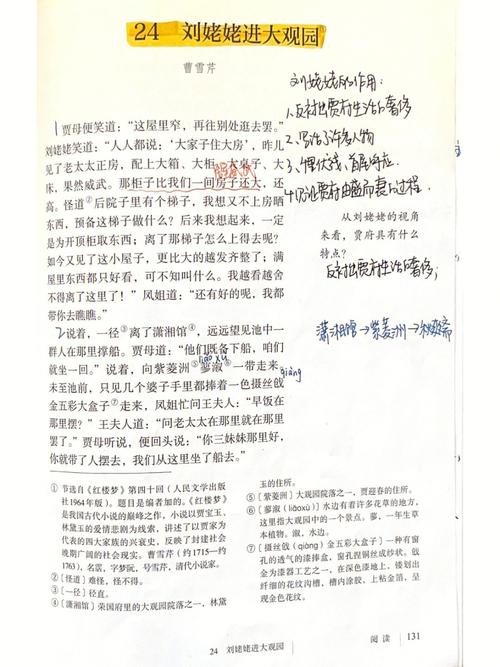 24 刘姥姥进大观园
曹雪芹
1贾母便笑道：“这屋里窄，再往别处逛去罢。”
刘姥姥笑道：“人人都说：‘大家子住大房’，昨儿
见了老太太正房，配上大箱、大柜、大桌子、大
床，果然威武。那柜子比我们一间房子还大，还
高。怪道②后院子里有个梯子，我想又不上房晒
东西，预备这梯子做什么？后来我想起来，一定
是为开顶柜取东西；离了那梯子怎么上得去呢？
如今又见了这小屋子，更比大的越发齐整了；满
屋里东西都只好看，可不知叫什么。我越看越舍
不得离了这里了！”凤姐道：“还有好的呢，我都
带你去瞧瞧。”
2说着，一径③离了潇湘馆④，远远望见池中一
群人在那里撑船。贾母道：“他们既备下船，咱们
就坐一回。”说着，向紫菱洲⑤蓼溆⑥一带走来。
liǎo xù
未至池前，只见几个婆子手里都捧着一色摄丝戗
qiàng
金五彩大盒子⑦走来，凤姐忙问王夫人：“早饭在
那里摆？”王夫人道：“问老太太在那里就在那里
罢了。”贾母听说，便回头说：“你三妹妹那里好，
你就带了人摆去，我们从这里坐了船去。”
刘姥姥的作用：
1.反衬出贾府生活的奢侈
2.写活了许多人物
3.埋伏线，首尾呼应
4.见证贾府由盛而衰的过程
从刘姥姥的视角
来看，贾府具有什么
特点？
反衬出贾府生活的奢侈；
潇湘馆→紫菱洲→秋爽斋
① 节选自《红楼梦》第四十回（人民文学出版
社1964年版）。题目是编者加的。《红楼梦》
是我国古代小说的巅峰之作，小说以贾宝玉、
林黛玉的爱情悲剧为线索，讲述了以贾家为
代表的四大家族的兴衰史，反映了封建社会
晚期广阔的社会现实。曹雪芹（约1715—约
1763），名霑，字梦阮，号雪芹，清代小说家。
② 〔怪道〕难怪，怪不得。
③ 〔一径〕径直。
④ 〔潇湘馆〕荣国府里的大观园院落之一，林黛
玉的住所。
⑤ 〔紫菱洲〕大观园院落之一，贾迎春的住所。
⑥ 〔蓼溆（liǎoxù）〕水边有着许多花草的地方，
这里指大观园中的一个景点。蓼，一年生草
本植物。溆，水边。
⑦ 〔摄丝戗（qiàng）金五彩大盒子〕一种有窗
孔的透气的漆捧盒，窗孔捏铜丝成纱状。戗
金为漆器工艺之一，在深色漆地上，镂划出
纤细的花纹沟槽，槽内涂胶，上粘金箔，呈
现金色花纹。
阅读 131
24 刘姥姥进大观园